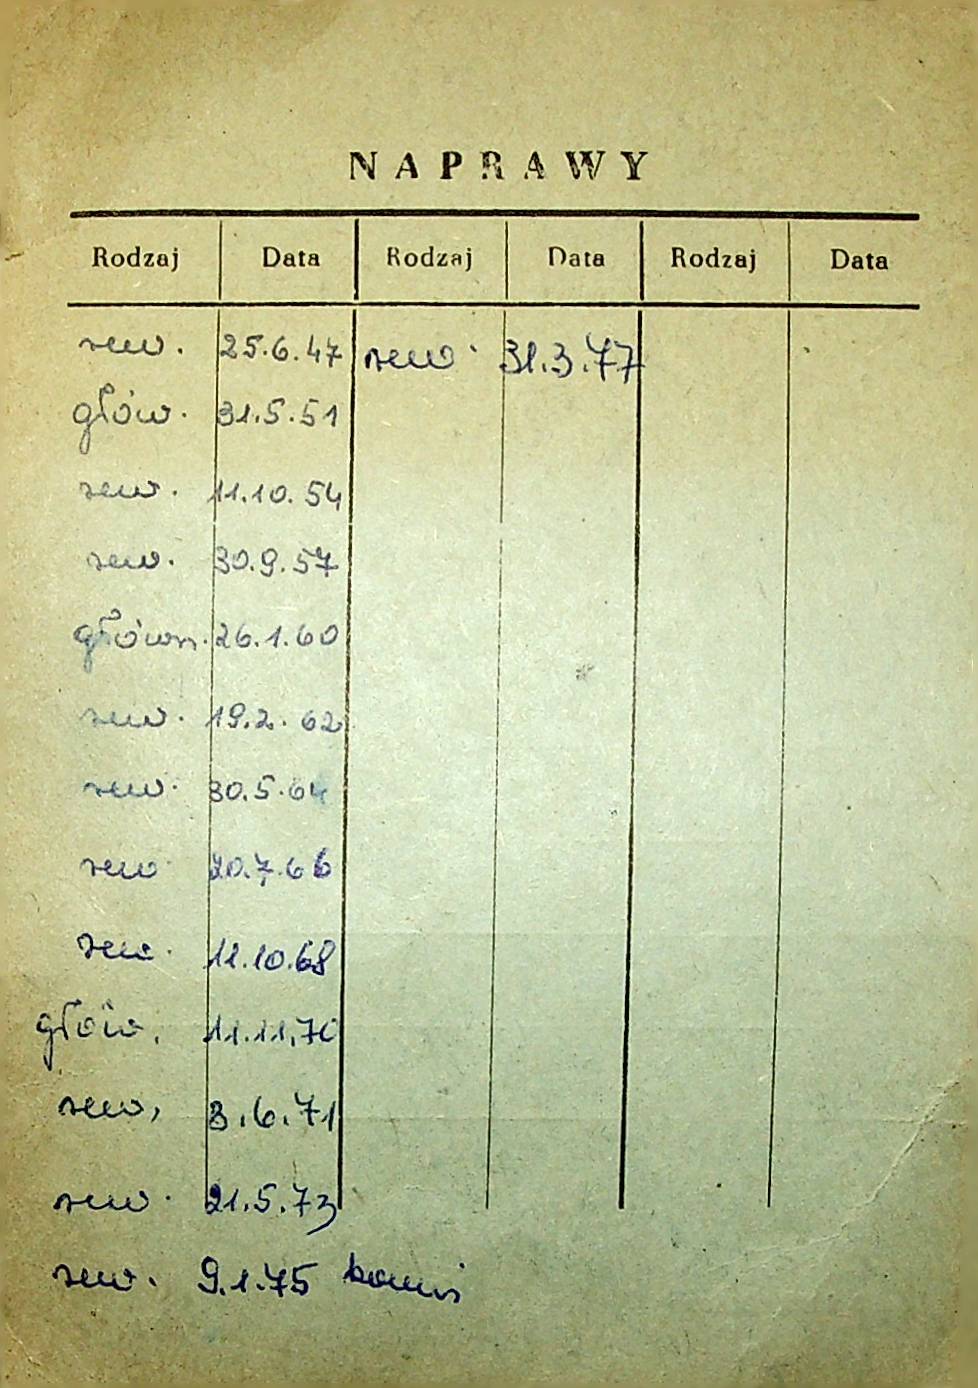 NAPRAWY
Rodzaj Data Rodzaj Data Rodzaj Data
rew. 25.6.47 rew. 31.3.77
głów. 31.5.51
rew. 11.10.54
rew. 30.9.57
główn. 26.1.60
rew. 19.2.62
rew. 30.5.64
rew 20.7.66
rew. 11.10.68
głów. 11.11.70
rew, 3.6.71
rew. 21.5.73
rew. 9.1.75